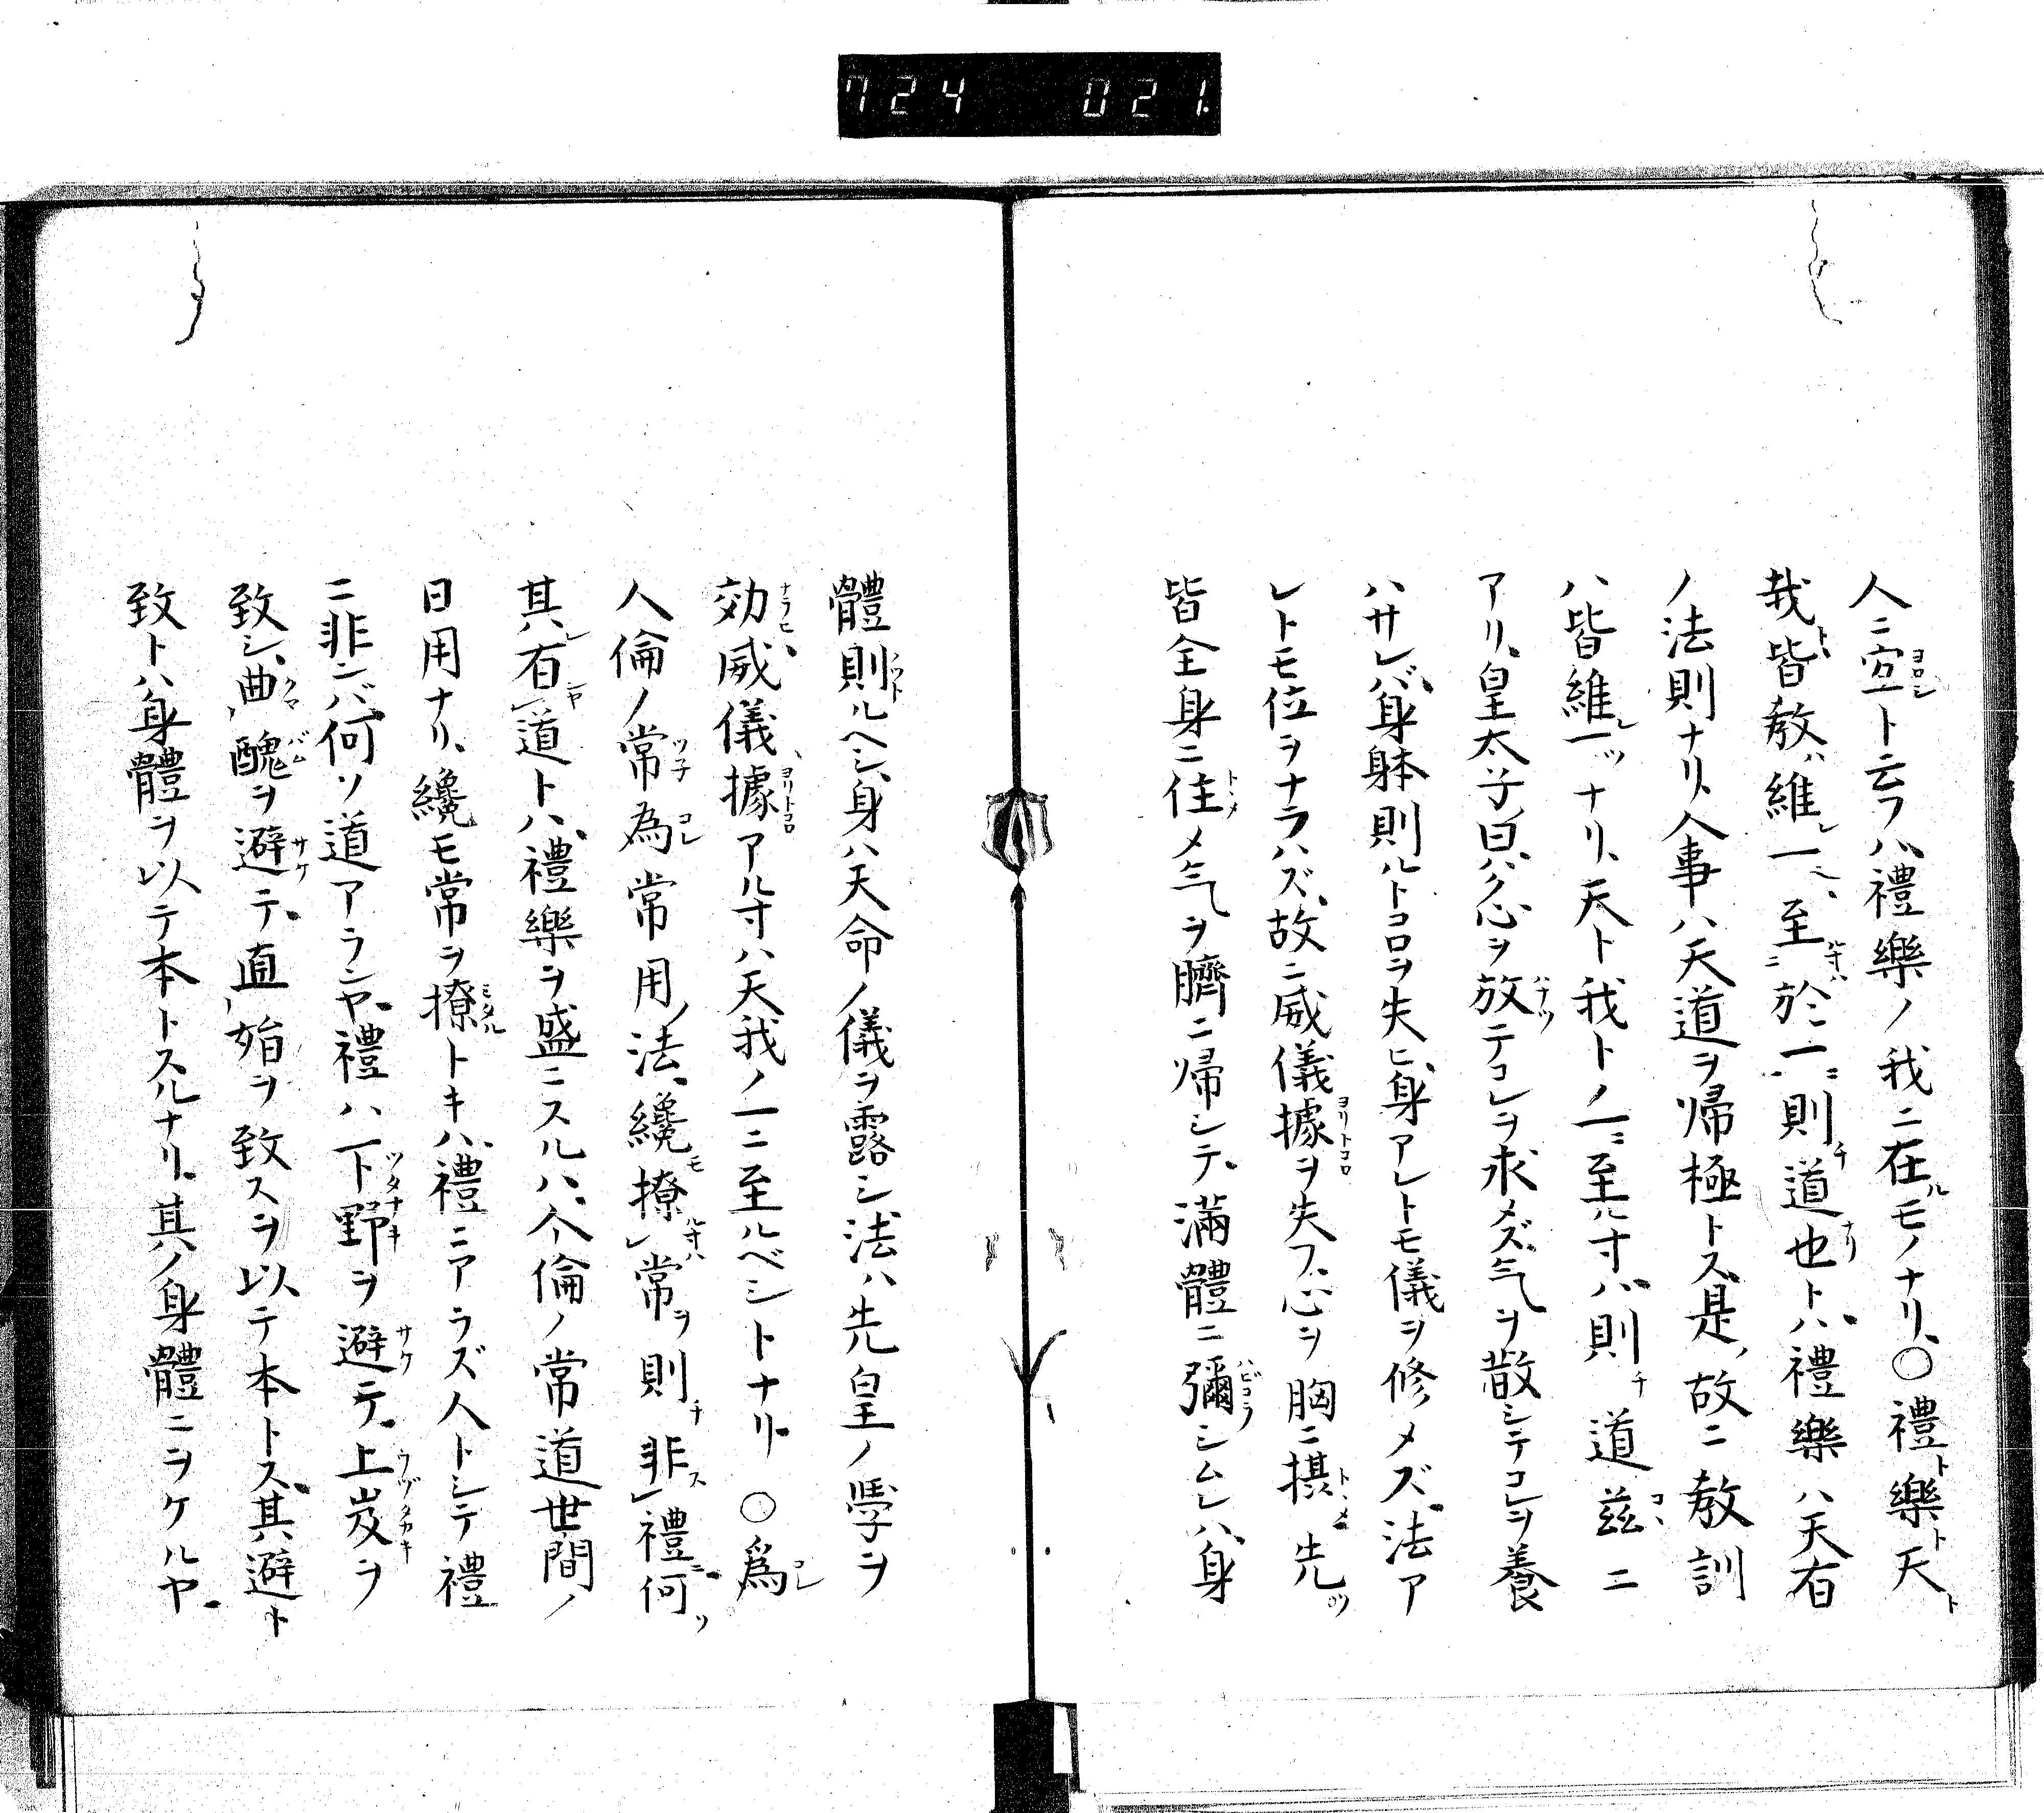 724 021
人ニ宜ト云フハ禮樂ノ我ニ在ルモノナリ、○禮ト樂ト天ト
哉皆教ハ維一、至ニ於一ニ則チ道也ナリトハ、禮樂ハ天有
ノ法則ナリ、人事ハ天道ヲ帰極トス、是故ニ教訓
ハ皆維一ツナリ、天ト我トノ一ニ至ル寸ハ、則チ道茲ニ
アリ、皇太子曰ハク心ヲ放テコレヲ求メズ、气ヲ散シテコレヲ養
ハサレバ、身躰則ルトコロヲ失ヒ、身アレトモ儀ヲ修メズ、法ア
レトモ位ヲナラハズ、故ニ威儀據ヲ失フ、心ヲ胸ニ摂メ先ツ
皆全身ニ住メ气ヲ臍ニ帰シテ、滿體ニ彌シムレハ、身
體則ルヘシ、身ハ天命ノ儀ヲ露シ法ハ先皇ノ學ヲ
効、威儀據アル寸ハ天我ノ一ニ至ルベシトナリ ○爲
人倫ノ常為常用ノ法、纔モ撩レ常ヲ則チ非レ禮ニ何ソ
其ハ有レ道トハ、禮樂ヲ盛ニスルハ、人倫ノ常道世間ノ
日用ナリ、纔モ常ヲ撩トキハ、禮ニアラズ人トシテ禮
ニ非ンバ、何ソ道アランヤ、禮ハ下野ヲ避テ、上岌ヲ
致シ、曲醜ヲ避テ、直始ヲ致スヲ以テ本トス、其避ト
致トハ身體ヲ以テ本トスルナリ、其ノ身體ニヲケルヤ、